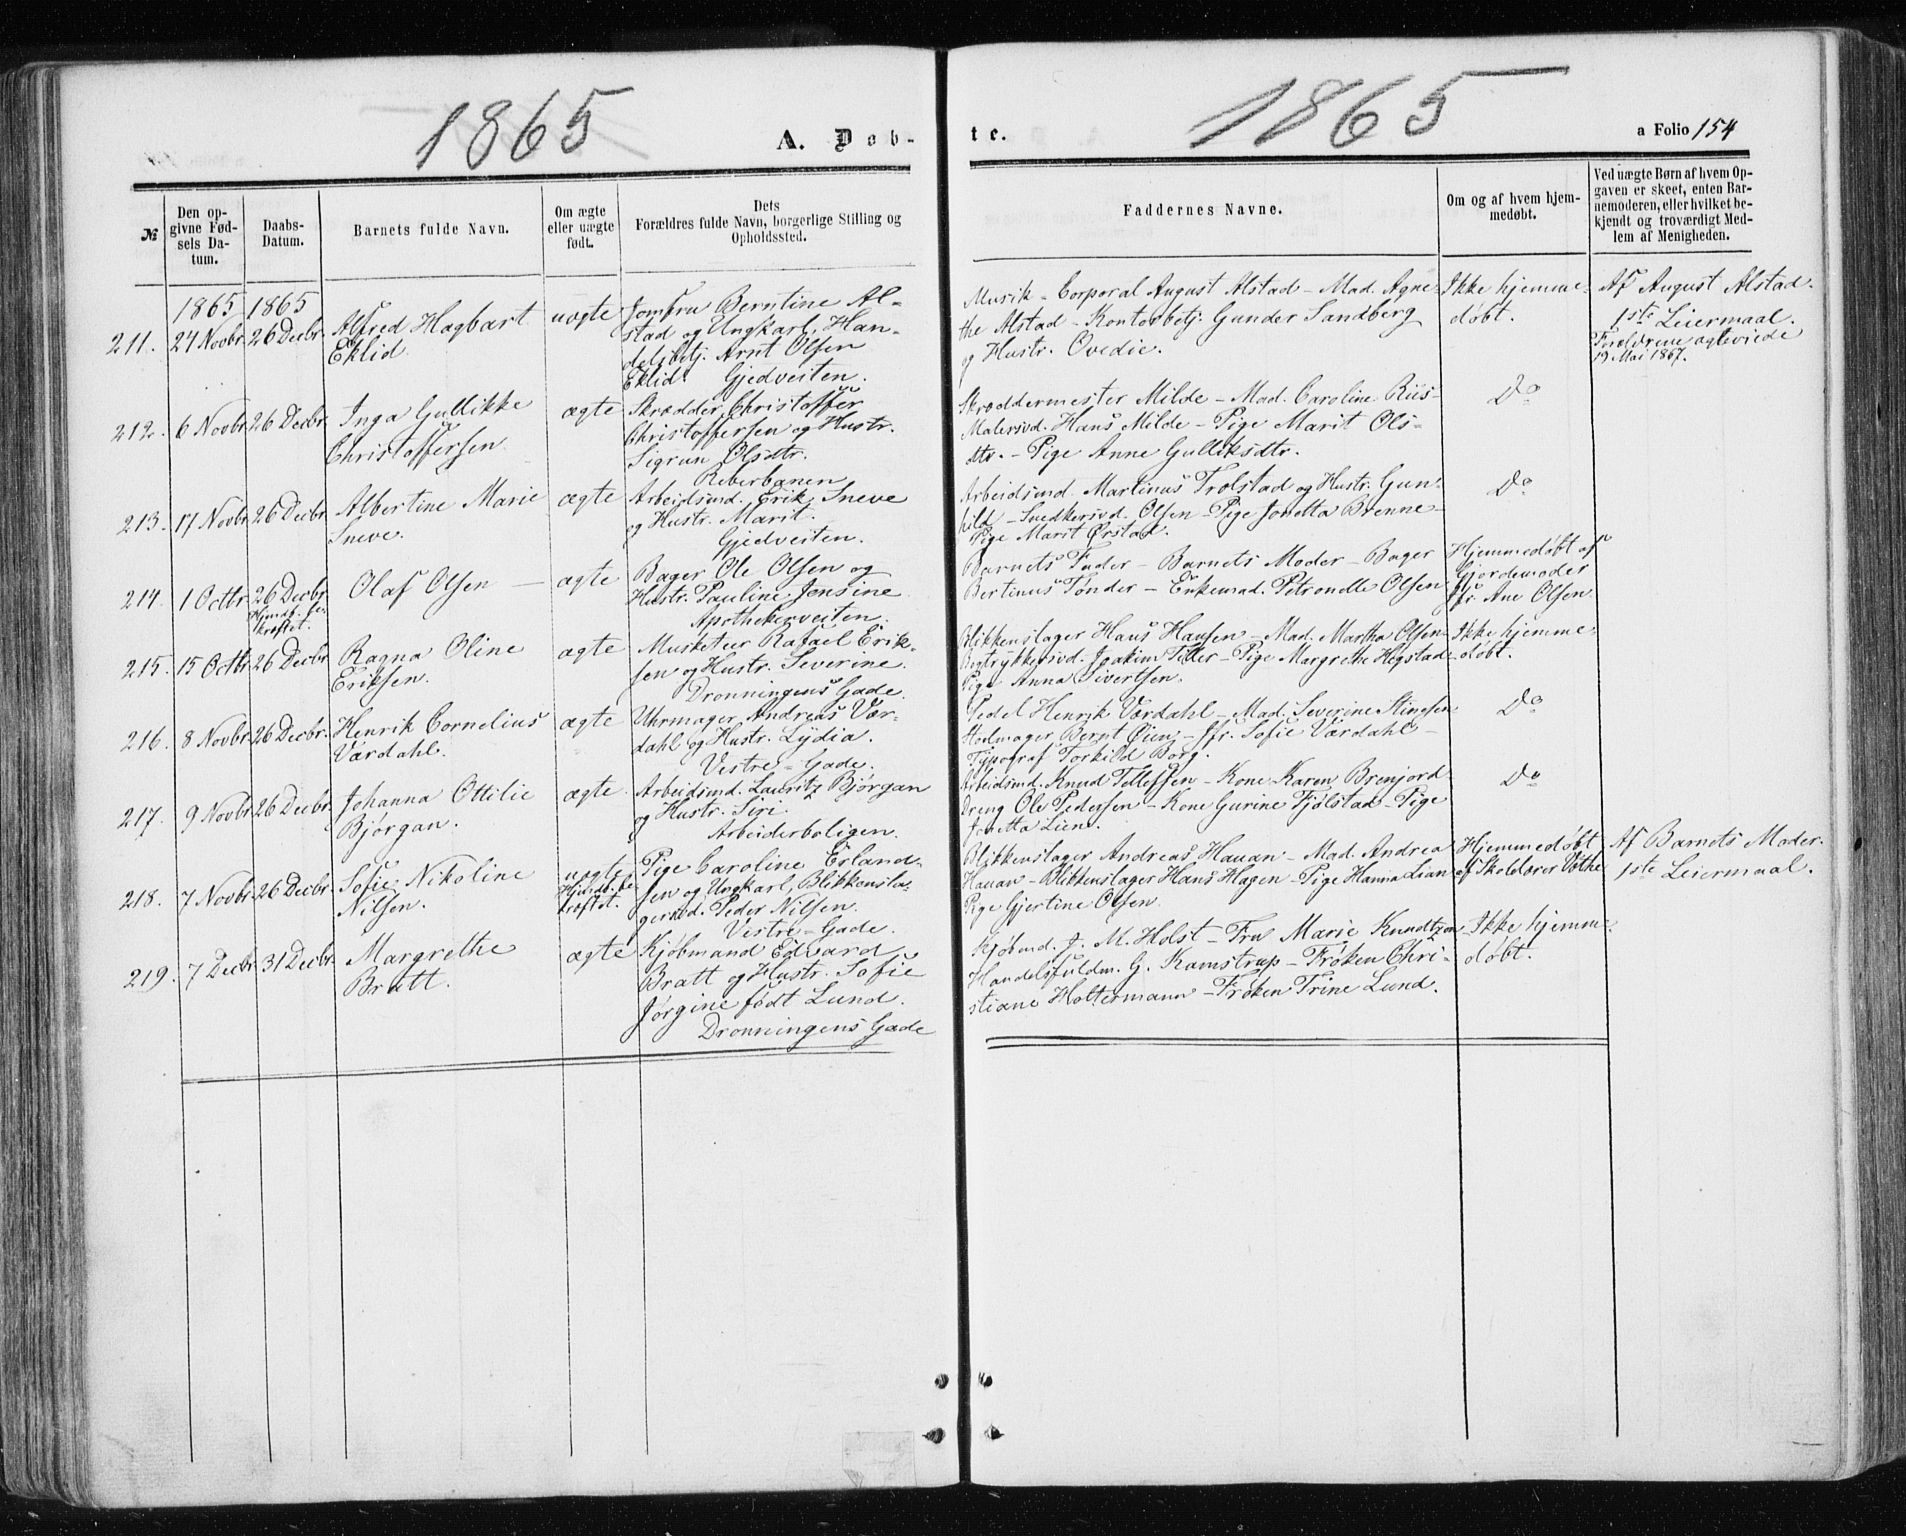 1865
A. Døb-
No
Den op-
givne Fød-
sels Da-
tum.
Daabs-
Datum.
Barnets fulde Navn.
Om ægte
eller uægte
født.
Dets
Forældres fulde Navn, borgerlige Stilling og
Opholdssted.
211.
1865
24 Novbr.
1865
26 Decbr.
Alfred Hagbart
Eklid.
uægte
Jomfru Berntine Al-
stad og Ungkarl, Han-
delsbetj. Arnt Olsen
Eklid. Gjedveiten.
212.
6 Novbr.
26 Decbr.
Inga Gullikke
Christoffersen.
ægte
Skrædder Christoffer
Christoffersen og Hustr.
Sigrun Olsdtr.
Reberbanen
213.
17 Novbr.
26 Decbr.
Albertine Marie
Sneve.
ægte
Arbeidsmd. Erik Sneve
og Hustr. Marit.
Gjedveiten.
214.
1 Octbr.
26 Decbr.
Hjmdb. be-
kræftet.
Olaf Olsen —
ægte
Bager Ole Olsen og
Hustr. Pauline Jensine
Apothekerveiten.
215.
15 Octbr.
26 Decbr.
Ragna Oline
Eriksen.
ægte
Musketeer Rafael Erik-
sen og Hustr. Severine.
Dronningens Gade.
216.
8 Novbr.
26 Decbr.
Henrik Cornelius
Værdahl.
ægte
Uhrmager Andreas Vær-
dahl og Hustr. Lydia.
Vestre-Gade.
217.
9 Novbr.
26 Decbr.
Johanna Ottilie
Bjørgan.
ægte
Arbeidsmd. Lauritz Bjørgan
og Hustr. Siri
Arbeiderboligen.
218.
7 Novbr.
26 Decbr.
Sofie Nikoline
Nilsen.
uægte
Hjmdb. be-
kræftet.
Pige Caroline Erland-
sen og Ungkarl, Blikkensla-
gersvd. Peder Nilsen.
Vestre-Gade.
219.
7 Decbr.
31 Decbr.
Margrethe
Bratt.
ægte
Kjøbmand Edvard
Bratt og Hustr. Sofie
Jørgine født Lund.
Dronningens Gade
1865
te.
a Folio 154
Faddernes Navne.
Om og af hvem hjem-
medøbt.
Ved uægte Børn af hvem Op-
gaven er skeet, enten Bar-
nemoderen, eller hvilket be-
kjendt og troværdigt Med-
lem af Menigheden.
Musik-Corporal August Alstad – Mad. Agne-
the Alstad – Kontorbetj. Gunder Sandberg
og Hustr. Ovedie.
Ikke hjemme-
døbt.
Af August Alstad.
1ste Leiermaal.
Forældrene ægteviede
19 Mai 1867.
Skræddermester Milde – Mad. Caroline Riis-
Malersvd. Hans Milde – Pige Marit Ols-
dtr. – Pige Anne Gulliksdtr.
Do
Arbeidsmd. Martinus Trolstad og Hustr. Gun-
hild – Snedkersvd. Olsen – Pige Jonetta Brenne –
Pige Marit Ørstad.
Do
Barnets Fader – Barnets Moder – Bager
Bertinus Tønder – Enkemad. Petronelle Olsen
Hjemmedøbt af
Gjordemoder
Jfr. Ane Olsen.
Blikkenslager Hans Hansen – Mad. Martha Olsen –
Bogtrykkersvd. Joakim Teller – Pige Margrethe Hegstad –
Pige Anna Sivertsen.
Ikke hjemme-
døbt.
Pedel Henrik Værdahl – Mad. Severine Stinesen
Stolmager Bernt Øien – Jfr. Sofie Værdahl –
Typograf Torkild Borg.
Do
Arbeidsmd. Knud Tellefsen – Kone Karen Brenjord
Dreng Ole Pedersen – Kone Gurine Fjølstad – Pige
Jonetta Lien.
Do
Blikkenslager Andreas Hauan – Mad. Andrea
Hauan – Blikkenslager Hans Hagen – Pige Hanna Lian
Pige Gjertine Olsen.
Hjemmedøbt
af Skolelærer Vithe
Af Barnets Moder.
1ste Leiermaal.
Kjøbmd. J. M. Holst – Fru Marie Knudtzon
Handelsfuldm. G. Kamstrup – Frøken Chri-
stiane Holtermann – Frøken Trine Lund.
Ikke hjemme-
døbt.